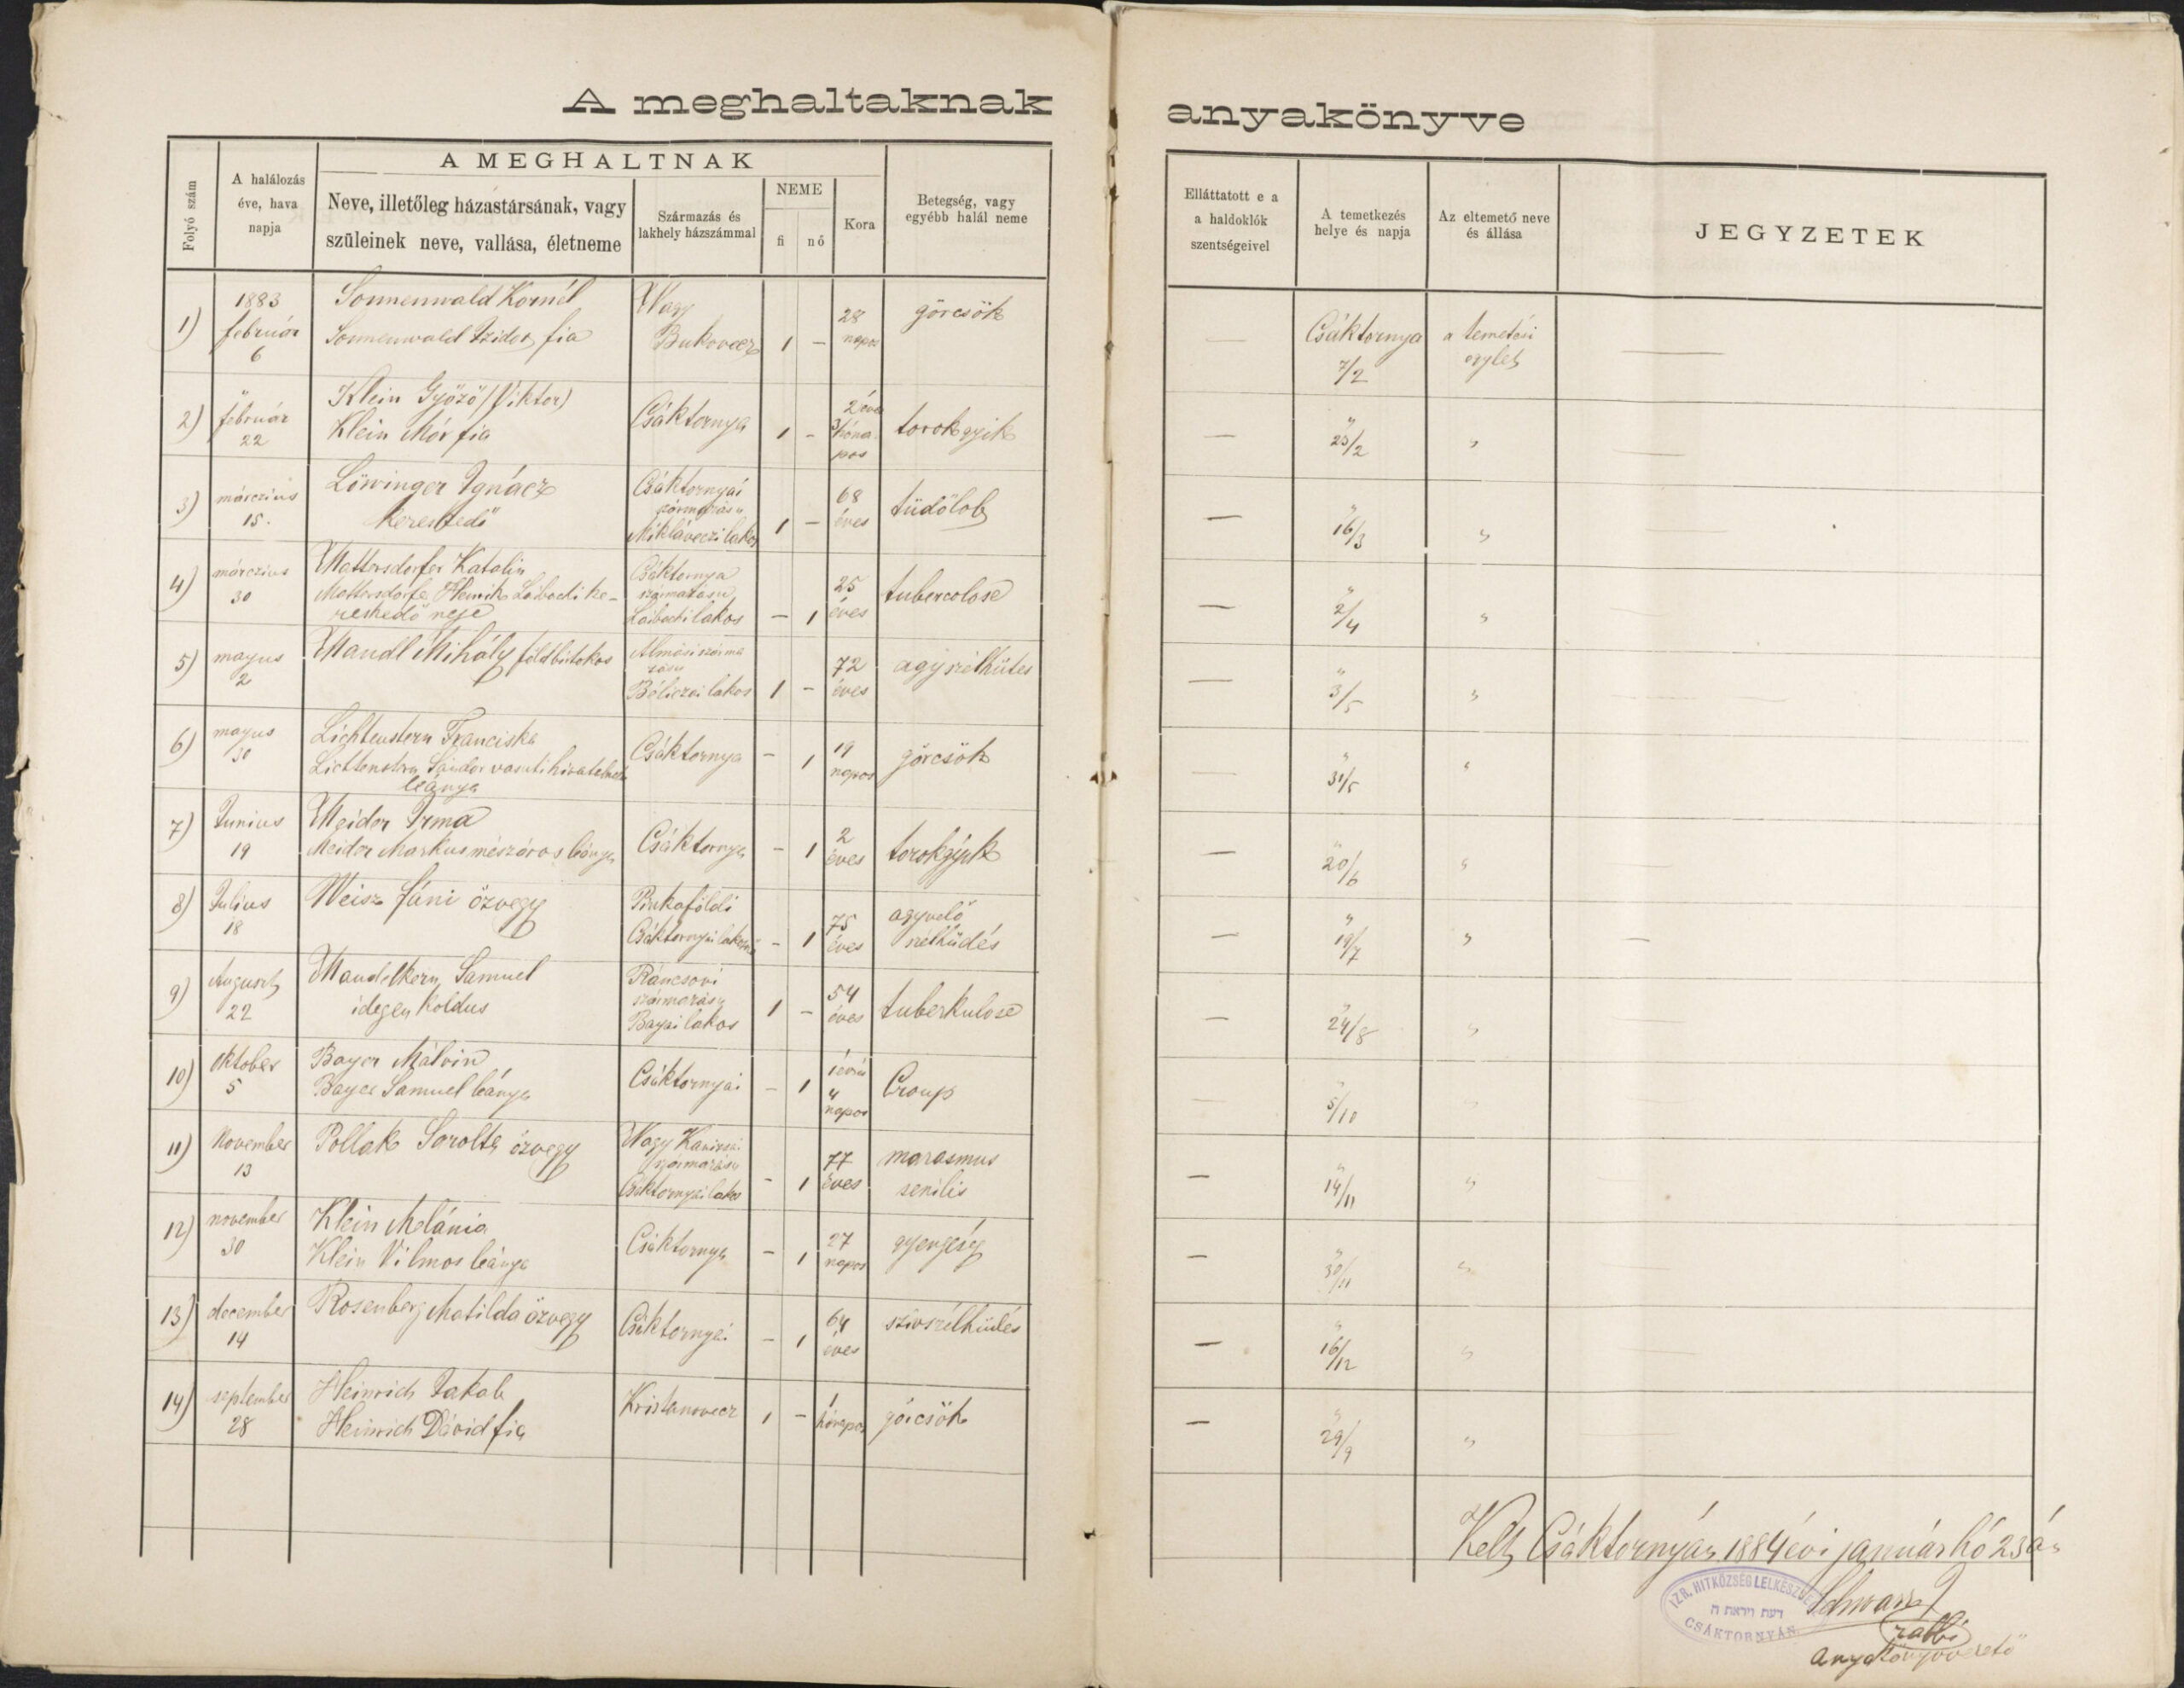 A meghaltaknak anyakönyve
Folyó szám
A halálozás
éve, hava
napja
A MEGHALTNAK
Neve, illetőleg házastársának, vagy
szüleinek neve, vallása, életneme
Származás és
lakhely házszámmal
NEME
fi
nő
Kora
Betegség, vagy
egyébb halál neme
Elláttatott e a
a haldoklók
szentségeivel
A temetkezés
helye és napja
Az eltemető neve
és állása
JEGYZETEK
1) 1883 Sonnenwald Kornél Nagy 28 görcsök
február Sonnenwald Izidor fia Bukovecz 1 — napos — Csáktornya a temetési —
6 7/2 egylet
2) " Klein Győző (Viktor) 2 éves
február Klein Mór fia Csáktornya 1 — 3 hóna torokgyik — " 23/2 " —
22 pos
3) márczius Löwinger Ignácz Csáktornyai 68 tüdőlob — " 16/3 " —
15. kereskedő származásu 1 — éves
Miklaveczi lakos
4) márczius Mattersdorfer Katalin Csáktornya 25 tubercolose — " 2/4 " —
30 Mattersdorfer Henrik Laibachi ke- származásu
reskedő neje Laibachi lakos — 1 éves
5) majus Mandl Mihály földbirtokos Almási szárma 72 agyszélhűtes — " 3/5 " —
2 zásu
Béliczei lakos 1 — éves
6) majus Lichtenstern Franciska Csáktornya — 1 19 görcsök — " 31/5 " —
30 Lichtenstern Sándor vasuti hivatalnok napos
leánya
7) Junius Meider Irma Csáktornya — 1 2 torokgyik — " 20/6 " —
19 Meider Markus mészáros leánya éves
8) Julius Weisz Fáni özvegy 75 agyvelő — " 19/7 " —
18 Csáktornyai lakosnő — 1 éves szélhűdés
9) August Mandelkern Samuel 54 tuberkulose — " 24/8 " —
22 idegen koldus származásu 1 — éves
Bajai lakos
10) Oktober Bayer Málvin Csáktornyai — 1 4 Croup — " 5/10 " —
5 Bayer Samuel leánya napos
11) November Pollak Sarolta özvegy Nagy Kanizsai 77 marasmus — " 14/11 " —
13 származásu
Csáktornyai lakos — 1 éves senilis
12) november Klein Melánia Csáktornya — 1 27 gyengeség — " 30/11 " —
30 Klein Vilmos leánya napos
13) december Rosenberg Matilda özvegy Csáktornyai — 1 64 szivszélhüdés — " 16/12 " —
14 éves
14) september Heinrich Jakab Kristanovecz 1 — 1 görcsök — " 29/9 " —
28 Heinrich Dávid fia hónapos
Kelt Csáktornyán 1884 évi január hó 23án
IZR. HITKÖZSÉG LELKÉSZSÉGE
דעת ויראת ה
CSÁKTORNYÁN
Schwarz J
rabbi
anyakönyvvezető